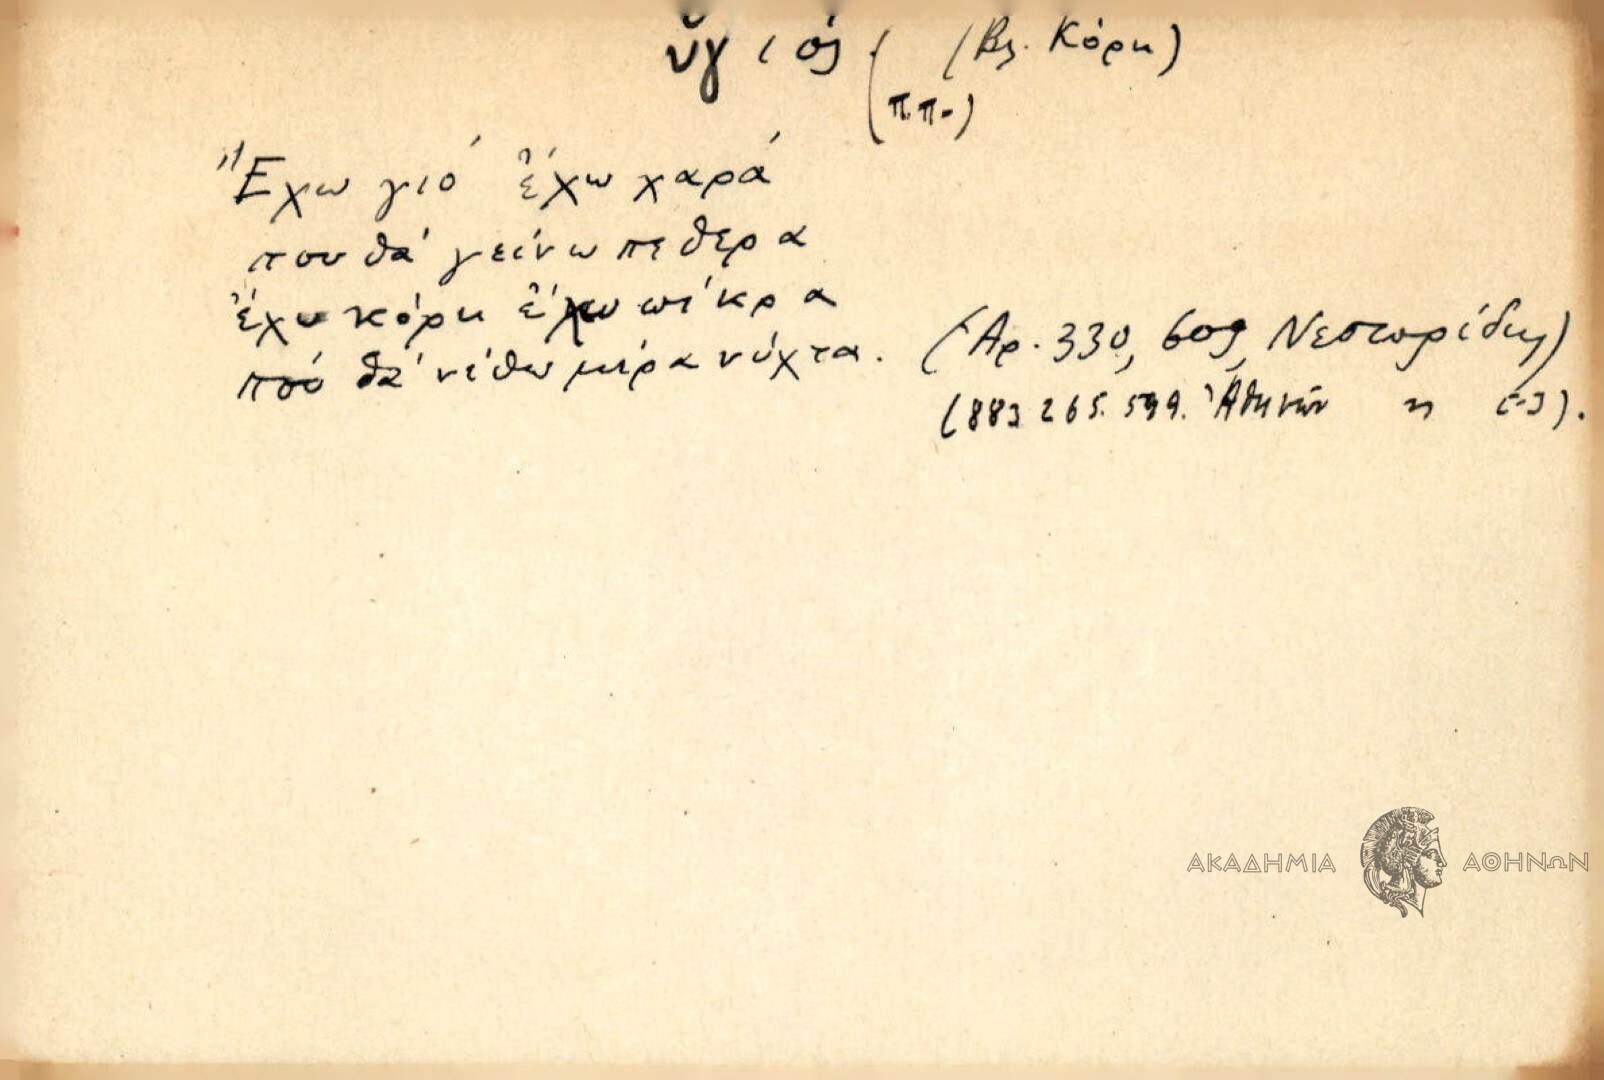 ὕγιός (Βλ. Κόρη)
(π.π.)
Ἔχω γιό ἔχω χαρά
που θά γείνω πεθερα
ἔχω κόρη ἔχω πίκρα
πού θά νέθω μέρα νύχτα. (Ἀρ. 330, 6ος, Νεστορίδης)
(883 265. 599. Ἀθηνῶν
ΑΚΑΔΗΜΙΑ ΑΘΗΝΩΝ